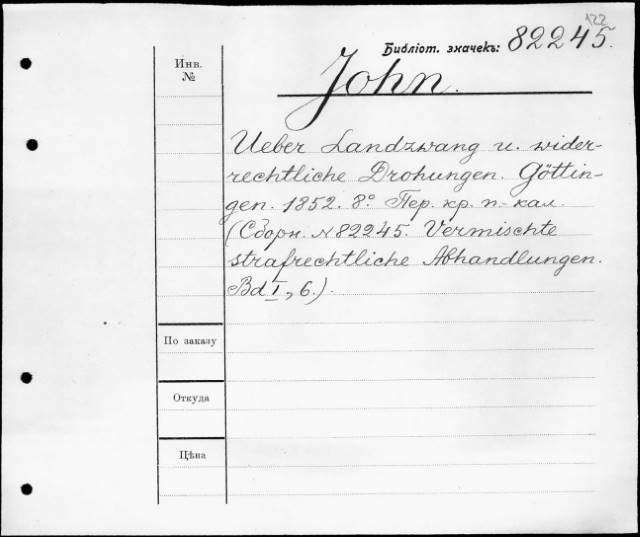 122
Библіот. значекъ: 82245.
Инв.
№
John.
Ueber Landzwang u. wider-
rechtliche Drohungen. Göttin-
gen. 1852. 8º. Пер. кр. п.-кал.
(Сборн. № 82245. Vermischte
strafrechtliche Abhandlungen.
Bd I, 6.).
По заказу
Откуда
Цѣна